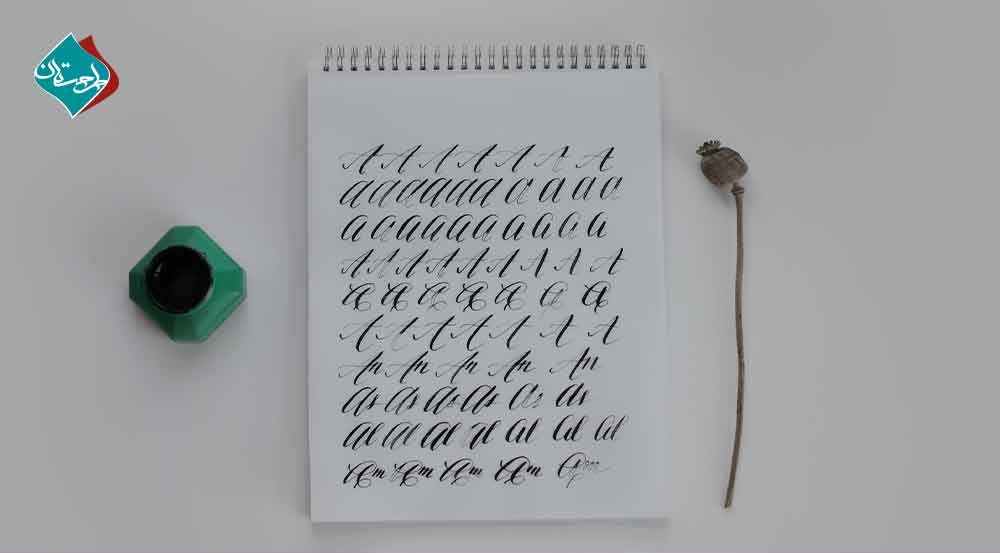 A A A A A A A
a a a a a a a a a a a
a a a a a a a a a a a
A A A A A A A A A A
A A A A A A A
A A A A A A A
An An An An An
As As As As As As
al al al al al al al
am am am am am